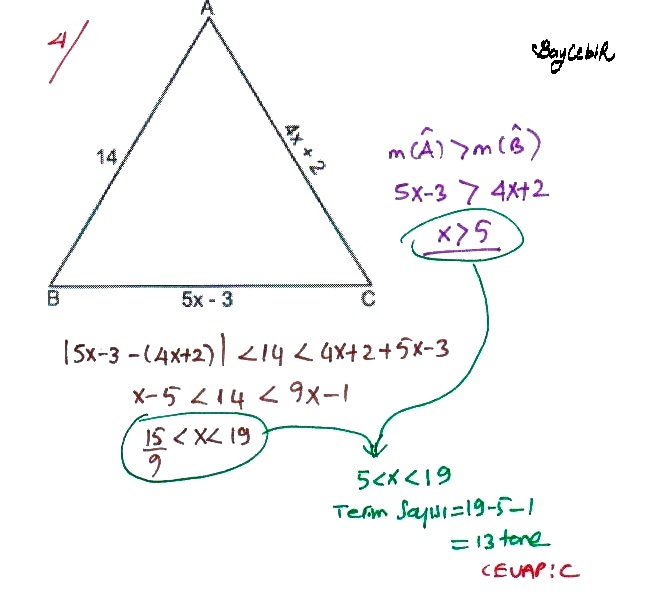 4/
A
BayCebiR
14
4x + 2
m(Â) > m(B̂)
5x-3 > 4x+2
x>5
B
5x - 3
C
|5x-3-(4x+2)| <14 < 4x+2+5x-3
x-5 <14 < 9x-1
15/9 < x< 19
5<x<19
Terim Sayısı=19-5-1
= 13 tane
CEVAP:C